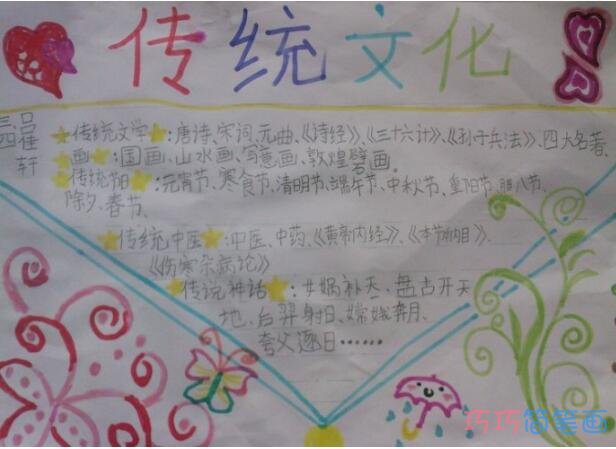 传统文化
三四
轩
传统文学:唐诗、宋词、元曲、《诗经》、《三十六计》、《孙子兵法》、四大名著、
画:国画、山水画、写意画、敦煌壁画。
传统节日:元宵节、寒食节、清明节、端午节、中秋节、重阳节、腊八节、
除夕、春节、
传统中医:中医、中药、《黄帝内经》、《本草纲目》、
《伤寒杂病论》
传说神话:女娲补天、盘古开天
地、后羿射日、嫦娥奔月、
夸父逐日……
巧巧简笔画